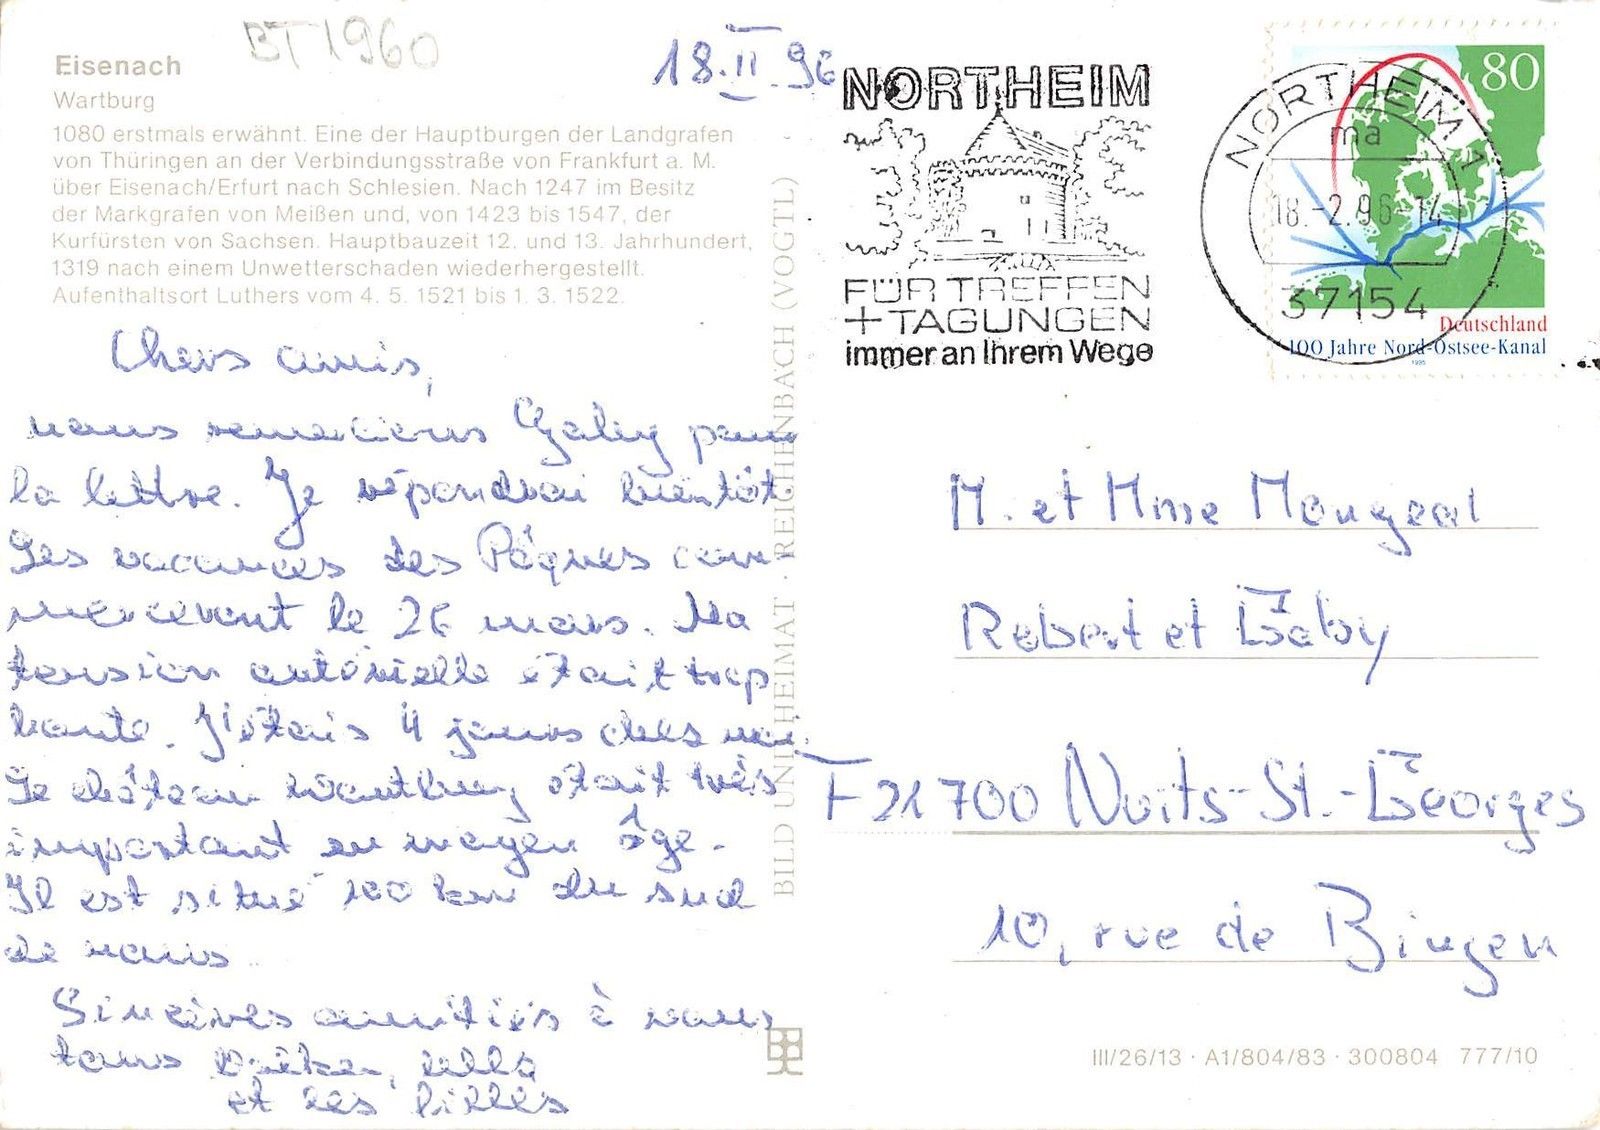 BT1960
Eisenach
Wartburg
1080 erstmals erwähnt. Eine der Hauptburgen der Landgrafen
von Thüringen an der Verbindungsstraße von Frankfurt a. M.
über Eisenach/Erfurt nach Schlesien. Nach 1247 im Besitz
der Markgrafen von Meißen und, von 1423 bis 1547, der
Kurfürsten von Sachsen. Hauptbauzeit 12. und 13. Jahrhundert,
1319 nach einem Unwetterschaden wiederhergestellt.
Aufenthaltsort Luthers vom 4. 5. 1521 bis 1. 3. 1522.
18.II.96
Chers amis,
nous remercions Gaby pour
la lettre. Je répondrai bientôt
Les vacances des Pâques com-
menceront le 26 mars. Ma
tension artérielle était trop
haute. J'étais 4 jours chez moi.
Le château Wartburg était très
important en moyen âge.
Il est situé 100 km du sud
de nous.
Sincères amitiés à vous
tous
et les filles
BILD UND HEIMAT · REICHENBACH (VOGTL)
NORTHEIM
FÜR TREFFEN
+ TAGUNGEN
immer an Ihrem Wege
NORTHEIM 1
ma
18.-2.96-14
37154
80
Deutschland
100 Jahre Nord-Ostsee-Kanal
1995
M. et Mme Mongeal
Robert et Gaby
F 21700 Nuits-St.-Georges
10, rue de Bingen
III/26/13 · A1/804/83 · 300804 777/10